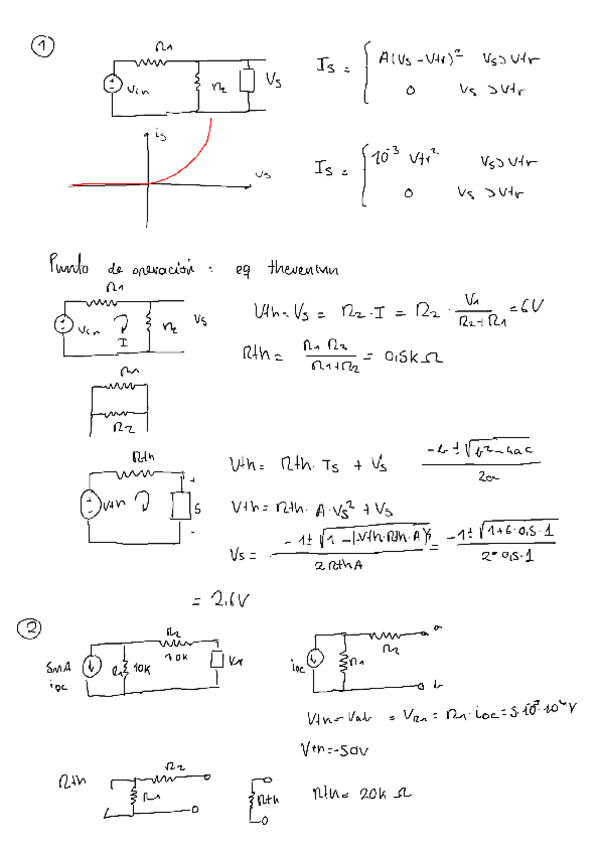 1
R1
Vin
R2
Vs
Is = { A(Vs - Vtr)² Vs > Vtr
0 Vs > Vtr
is
vs
Is = { 10⁻³ Vtr² Vs > Vtr
0 Vs > Vtr
Punto de operación : eq thevenin
R1
Vin
I
R2
Vs
Vth = Vs = R2 · I = R2 · V1 / (R2 + R1) = 6V
Rth = R1 R2 / (R1 + R2) = 0,5k Ω
R1
R2
Rth
Vth
S
+
-
Vth = Rth · Is + Vs
-b ± √(b² - 4ac) / 2a
Vth = Rth · A · Vs² + Vs
Vs = -1 ± √(1 - (-Vth · Rth · A)4) / 2RthA = -1 ± √(1 + 6 · 0,5 · 1) / 2 · 0,5 · 1
= 2.6V
2
5mA
ioc
R1
10K
R2
10K
ioc
R1
R2
a
b
Vth = Vab = VR1 = R1 · ioc = 5 · 10⁻³ · 10⁴ V
Vth = -50V
Rth
R2
R1
Rth
Rth = 20k Ω